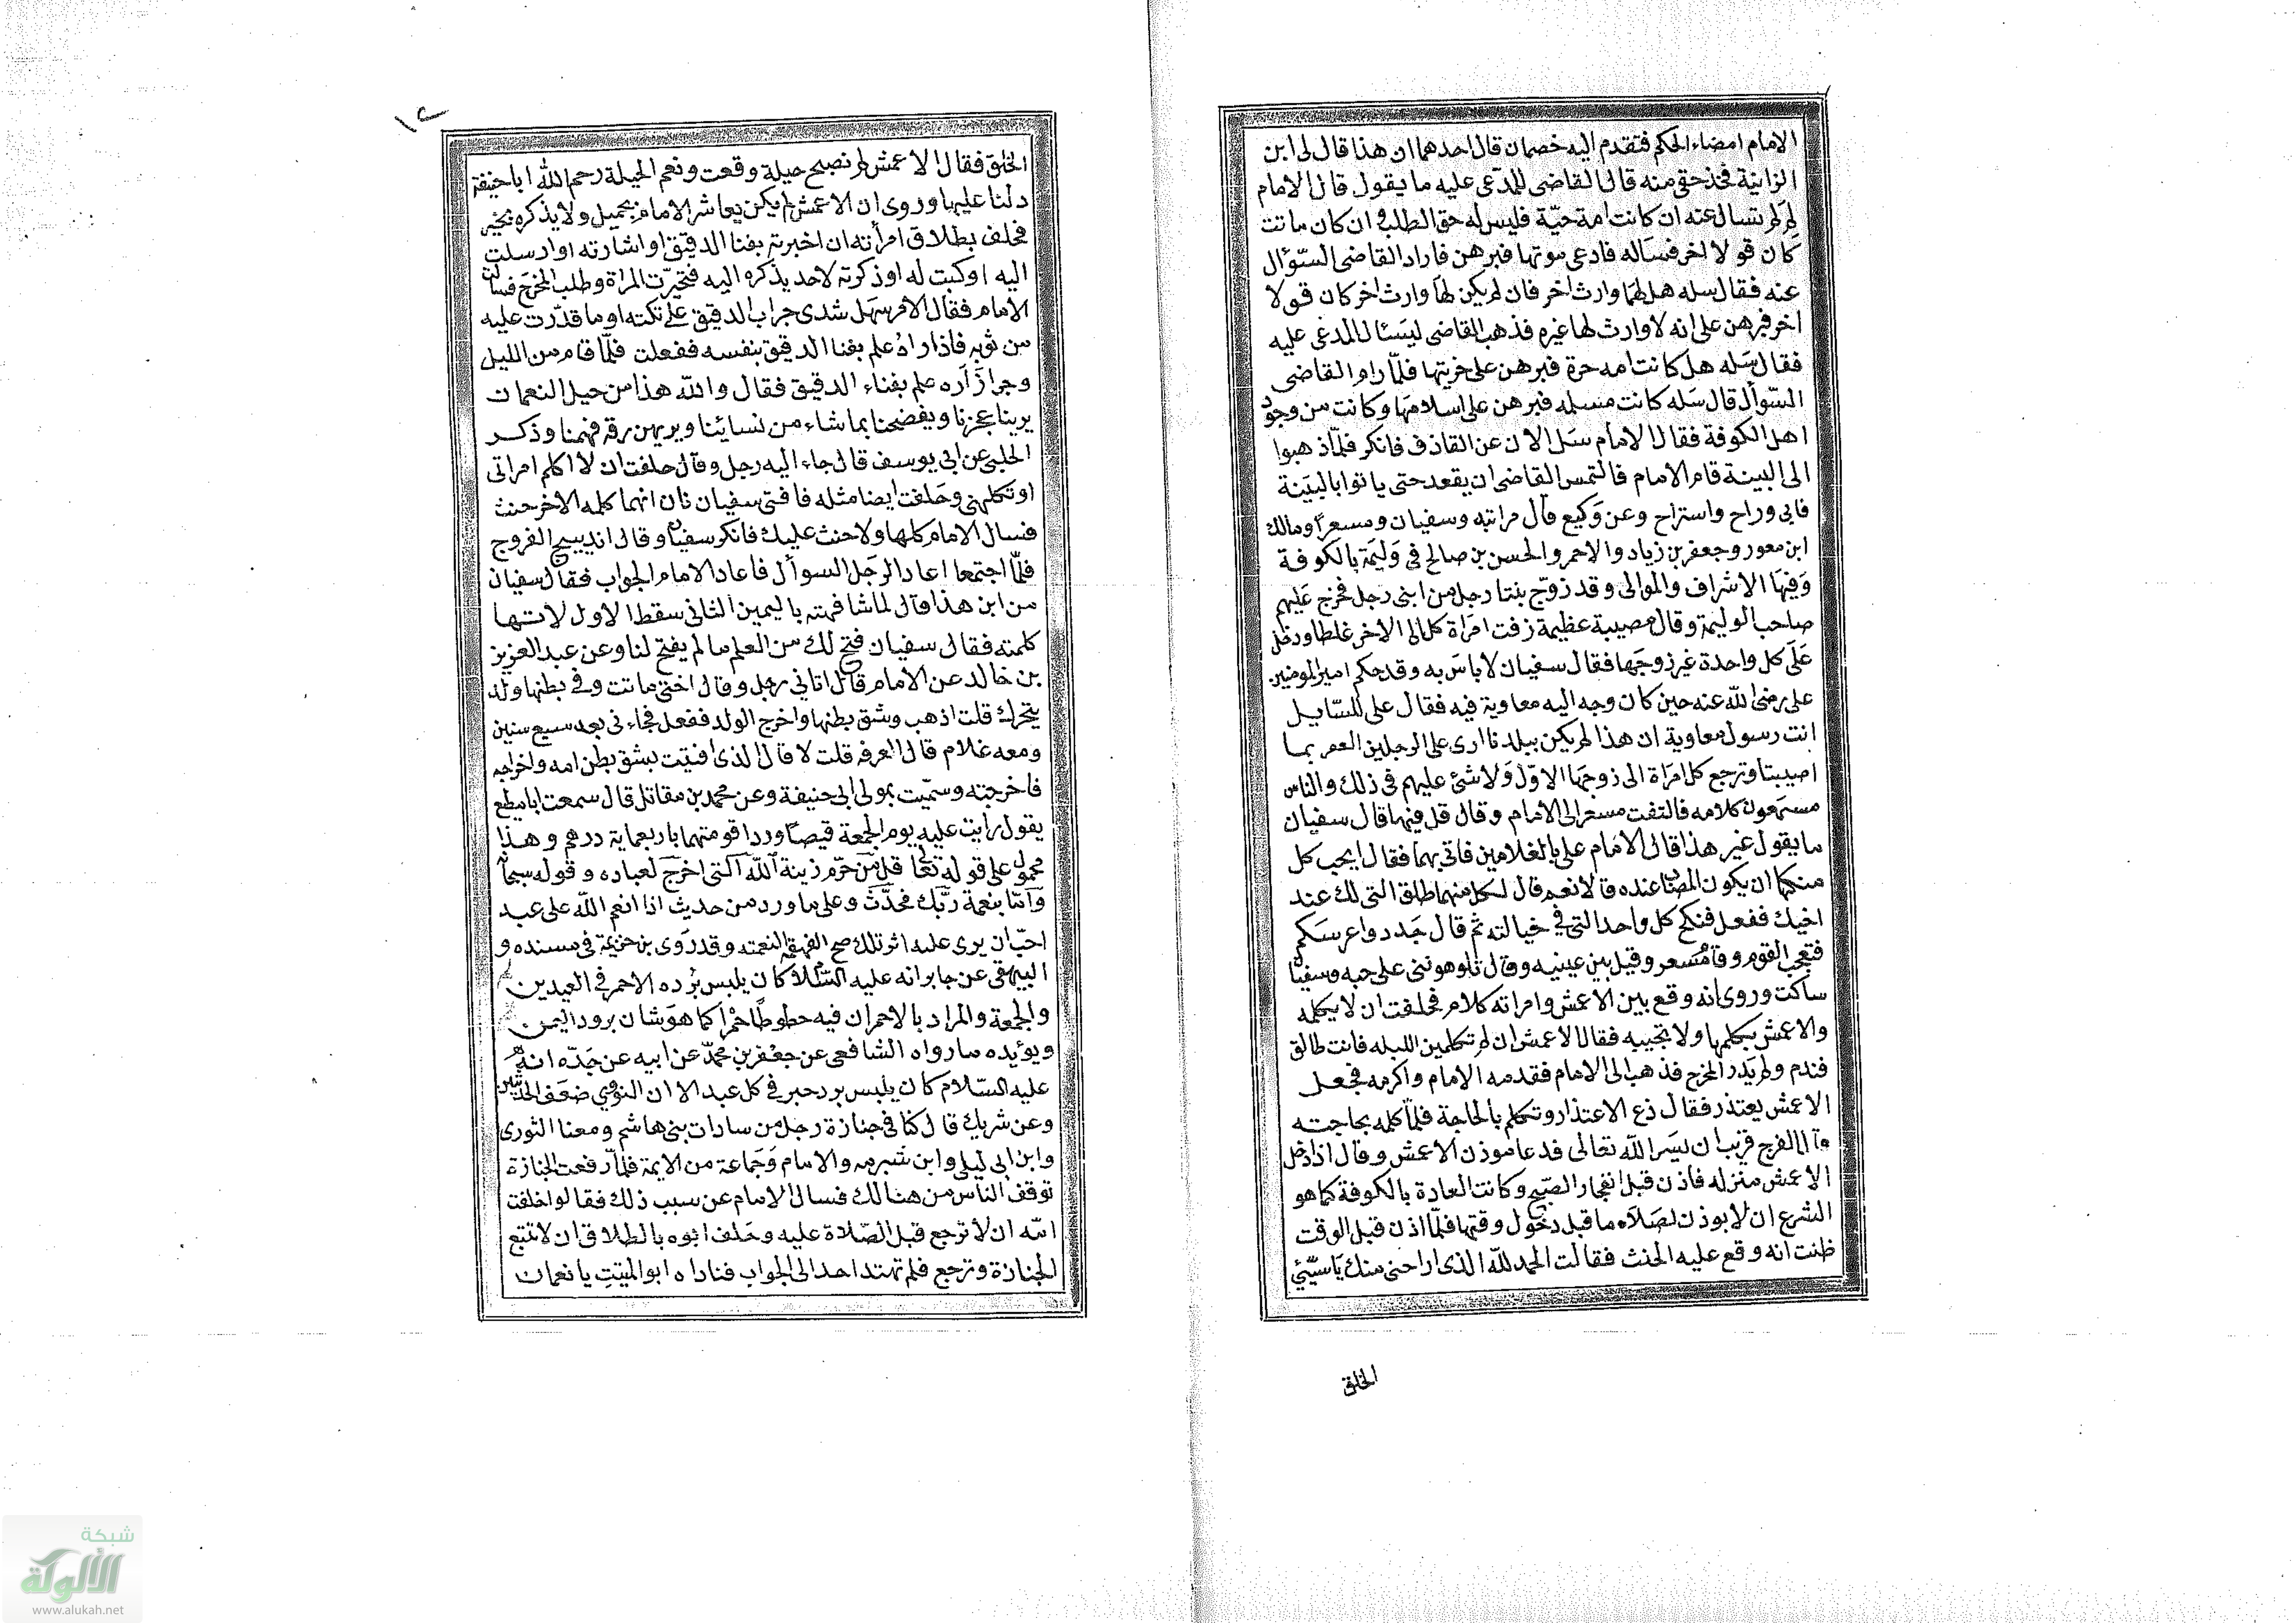 الامام امضاء الحكم فتقدم اليه خصمان قال احدهما ان هذا قال لى ابن
الزانية فخذ حقى منه قال القاضى للمدعى عليه ما يقول قال الامام
لم لم تسال عنه ان كانت امه حيّة فليس له حق الطلب وان كان ماتت
كان قولا اخر فساله فادعى موتها فبرهن فاراد القاضى السّؤال
عنه فقال سله هل لها وارث اخر فان لم يكن لها وارث اخر كان قولا
اخر فبرهن على انه لا وارث لها غيره فذهب القاضى ليسئال المدعى عليه
فقال سله هل كانت امه حرة فبرهن على حريتها فلمّا رام القاضى
السّوال قال سله كانت مسلمه فبرهن على اسلامها وكانت من وجوه
اهل الكوفة فقال الامام سل الان عن القاذف فانكر فلمّا ذهبوا
الى البينة قام الامام فالتمس القاضى ان يقعد حتى ياتوا بالبينة
فابى وراح واستراح وعن وكيع قال مراتبه وسفيان ومسعرا ومالك
ابن معور وجعفر بن زياد والاحمر والحسن بن صالح فى وليمة بالكوفة
وفيها الاشراف والموالى وقد زوّج بنتا رجل من ابنى رجل فخرج عليهم
صاحب الوليمة وقال مصيبة عظيمة زفت امراة كل الى الاخر غلطا ودخل
على كل واحدة غير زوجها فقال سفيان لا باس به وقد حكم امير المومنين
على رضى الله عنه حين كان وجه اليه معاوية فيه فقال على للسّايل
انت رسول معاوية ان هذا لم يكن ببلدنا ارى على الرجلين العقر بما
اصيبتا وترجع كل امراة الى زوجها الاوّل ولا شئ عليهم فى ذلك والناس
مستمعون كلامه فالتفت مسعر الى الامام وقال قل فيها قال سفيان
ما يقول غير هذا قال الامام على بالغلامين فاتى بهما فقال ايحب كل
منكما ان يكون المصابا عنده قالا نعم قال لكل منهما طلق التى لك عند
اخيك ففعل فنكح كل واحد التى فى حبالته ثم قال جددوا عرسكم
فتعجب القوم وقام مسعر وقبل بين عينيه وقال تلوموننى على حبه وسفيان
ساكت وروى انه وقع بين الاعمش وامراته كلام فحلفت ان لا يكلمه
والاعمش يكلمها ولا تجيبه فقال الاعمش ان لم تتكلمين الليله فانت طالق
فندم ولم يدر المخرج فذهب الى الامام فقدمه الامام واكرمه فجعل
الاعمش يعتذر فقال دع الاعتذار وتكلم بالحاجة فلمّا كلمه بحاجته
قال الفرج قريب ان يسر الله تعالى فدعا موذن الاعمش وقال اذا دخل
الاعمش منزله فاذن قبل انفجار الصّبح وكانت العادة بالكوفة كما هو
الشرع ان لا يوذن لصلاه ما قبل دخول وقتها فلمّا اذن قبل الوقت
ظنت انه وقع عليه الحنث فقالت الحمد لله الذى اراحنى منك يا سيّئ
الخلق
١٢
الخلق فقال الاعمش لم نصبح حيلة وقعت ونعم الحيلة رحم الله ابا حنيفة
دلنا عليها وروى ان الاعمش لم يكن يعاشر الامام بجميل ولا يذكره بخير
فحلف بطلاق امرأته ان اخبرته بفنا الدقيق او اشارته او ارسلت
اليه او كتبت له او ذكرته لاحد يذكره اليه فتحيّرت المراة وطلب المخرج فسالت
الامام فقال الامر سهل شدى جراب الدقيق على تكته او ما قدرت عليه
من ثوبه فاذا راه علم بفنا الدقيق بنفسه ففعلت فلمّا قام من الليل
وجرا زآره علم بفناء الدقيق فقال والله هذا من حيل النعمان
يرينا عجزنا ويفضحنا بما شاء من نسائينا ويريهن رقة فهمنا وذكر
الحلبى عن ابى يوسف قال جاء اليه رجل وقال حلفت ان لا اكلم امراتى
او تكلمنى وحلفت ايضا مثله فافتى سفيان بان ايهما كلمه الاخر حنث
فسال الامام كلمها ولا حنث عليك فانكر سفيان وقال انه يبيح الفروج
فلمّا اجتمعا اعاد الرجل السوأل فاعاد الامام الجواب فقال سفيان
من اين هذا قال لما شافهته باليمين الثانى سقط الاول لانها
كلمته فقال سفيان فتح لك من العلم ما لم يفتح لنا وعن عبد العزيز
بن خالد عن الامام قال اتانى رجل وقال اختى ماتت وفى بطنها ولد
يتحرك قلت اذهب وشق بطنها واخرج الولد ففعل فجاءنى بعد سبع سنين
ومعه غلام قال اتعرفه قلت لا قال الذى افتيت بشق بطن امه واخراجه
فاخرجته وسمّيت بمولى ابى حنيفة وعن محمد بن مقاتل قال سمعت ابا مطيع
يقول رأيت عليه يوم الجمعة قميصا وردا قومتهما باربعماية درهم وهذا
محمول على قوله تعالى قل من حرّم زينة الله التى اخرج لعباده وقوله سبحانه
وامّا بنعمة ربّك فحدّث وعلى ما ورد من حديث اذا انعم الله على عبد
احبّ ان يرى عليه اثر تلك النعمته وقد روى بن خزيمة فى مسنده و
البيهقى عن جابر انه عليه السّلام كان يلبس برده الاحمر فى العيدين
والجمعة والمراد بالاحمر ان فيه خطوطا حمرا كما هو شان برود اليمن
ويؤيده ما رواه الشافعى عن جعفر بن محمّد عن ابيه عن جدّه انه
عليه السّلام كان يلبس برد حبر فى كل عيد الا ان النووى ضعف الحديثين
وعن شريك قال كنّا فى جنازة رجل من سادات بنى هاشم ومعنا الثورى
وابن ابى ليلى وابن شبرمه والامام وجماعة من الايمة فلمّا رفعت الجنازة
توقف الناس من هنالك فسال الامام عن سبب ذلك فقالوا حلفت
امّه ان لا ترجع قبل الصّلاة عليه وحلف ابوه بالطلاق ان لا تتبع
الجنازة وترجع فلم تهتد احد الى الجواب فناداه ابو الميّت يا نعمان
شبكة
الألوكة
www.alukah.net